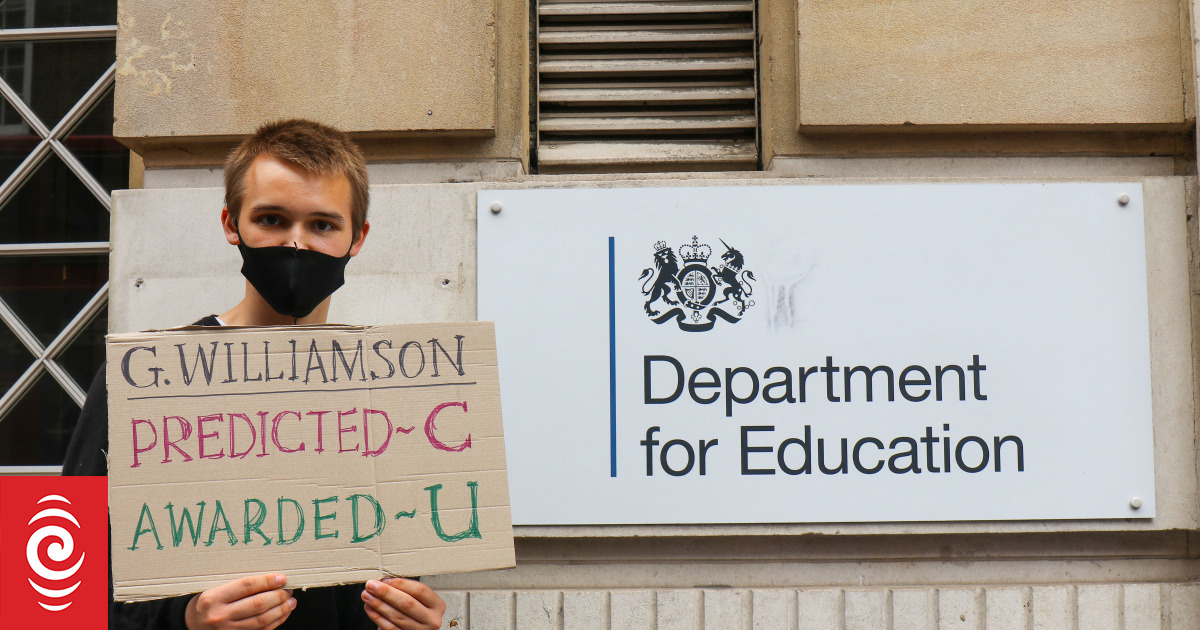 G. WILLIAMSON
PREDICTED~C
AWARDED~U
Department
for Education